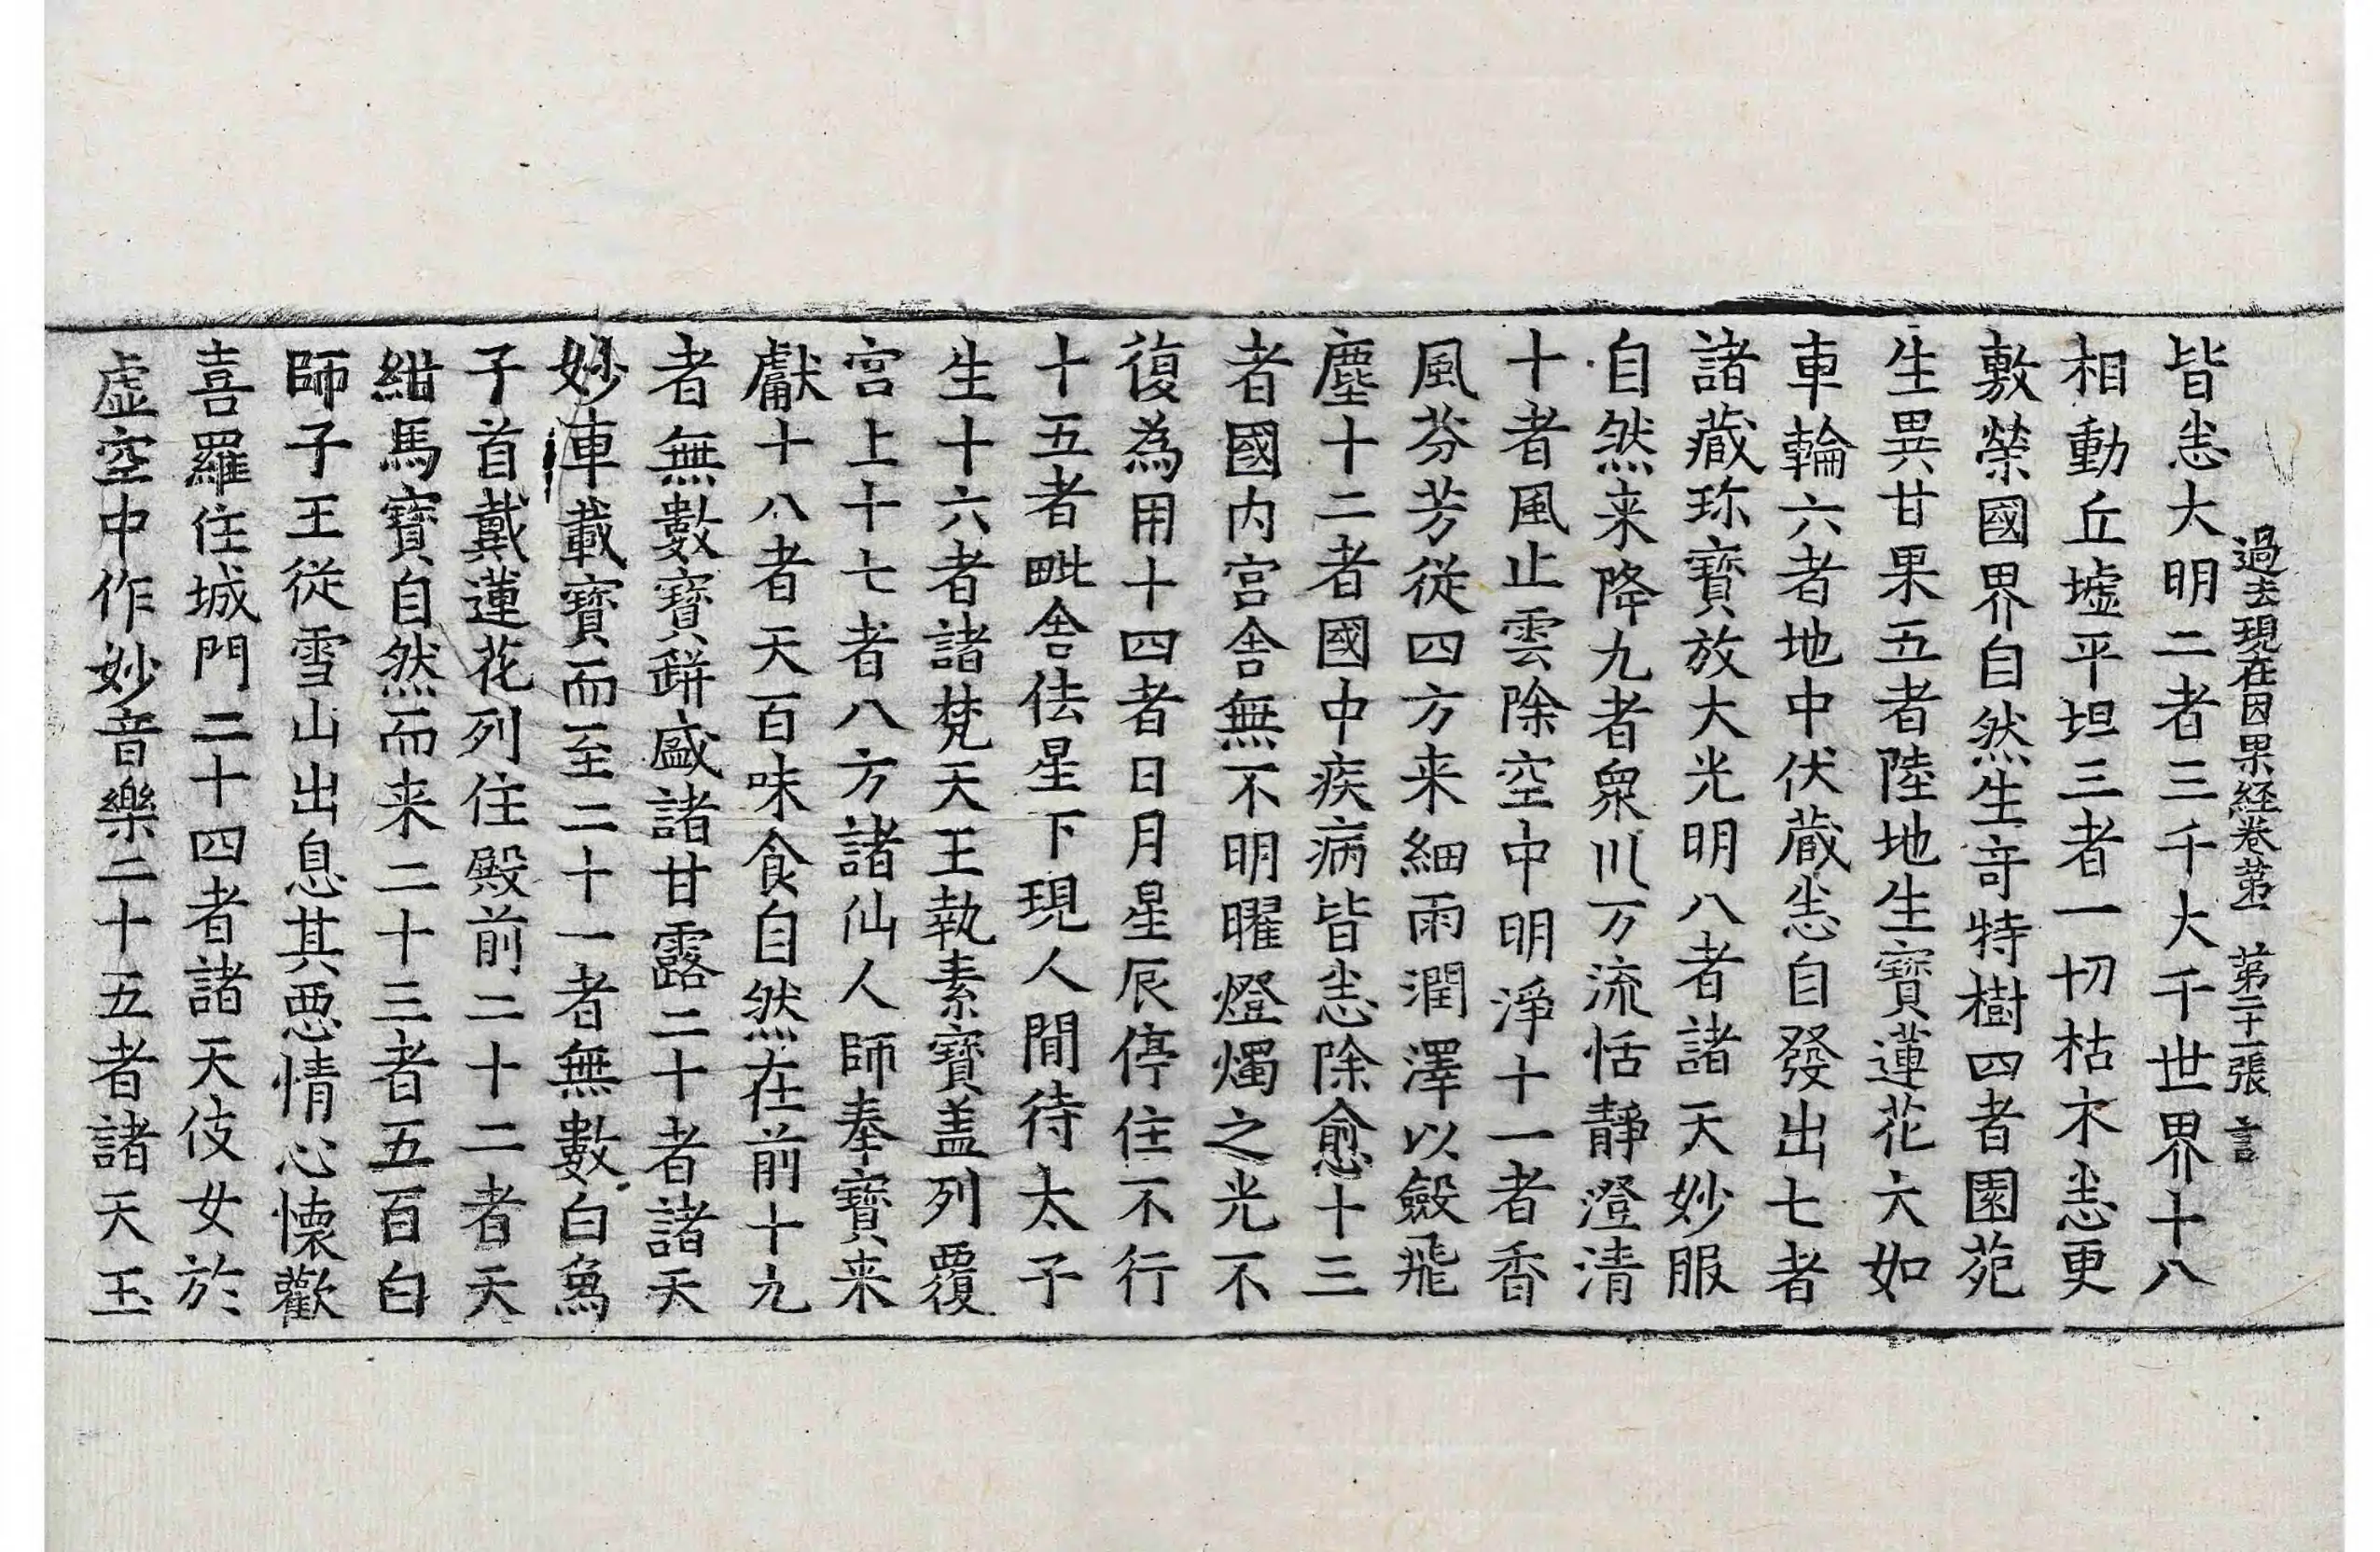 過去現在因果経卷第一　第二十一張　言
皆悉大明二者三千大千世界十八
相動丘墟平坦三者一切枯木悉更
敷榮國界自然生竒特樹四者園苑
生異甘果五者陸地生寶蓮花大如
車輪六者地中伏蔵悉自發出七者
諸蔵珎寶放大光明八者諸天妙服
自然来降九者衆川万流恬靜澄清
十者風止雲除空中明淨十一者香
風芬芳從四方来細雨潤澤以斂飛
塵十二者國中疾病皆悉除愈十三
者國内宮舍無不明曜燈燭之光不
復為用十四者日月星辰停住不行
十五者毗舍佉星下現人間待太子
生十六者諸梵天王執素寶盖列覆
宮上十七者八方諸仙人師奉寶来
獻十八者天百味食自然在前十九
者無數寶缾盛諸甘露二十者諸天
妙車載寶而至二十一者無數白象
子首戴蓮花列住殿前二十二者天
紺馬寶自然而来二十三者五百白
師子王從雪山出息其惡情心懐歡
喜羅住城門二十四者諸天伎女於
虛空中作妙音樂二十五者諸天玉